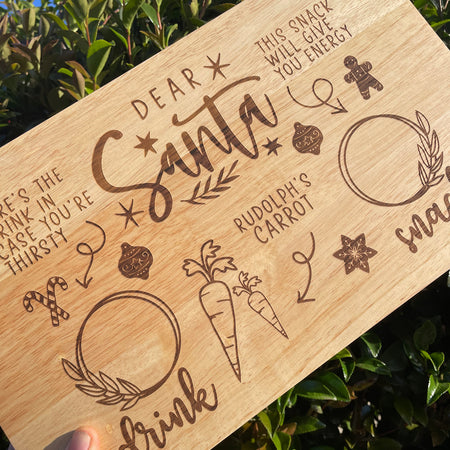 DEAR
Santa
THIS SNACK
WILL GIVE
YOU ENERGY
DRINK IN
CASE YOU'RE
THIRSTY
THE
RUDOLPH'S
CARROT
drink